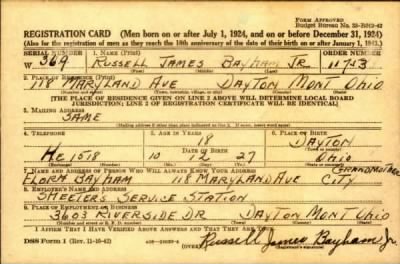 Form Approved
Budget Bureau No. 33-R012-42
REGISTRATION CARD (Men born on or after July 1, 1924, and on or before December 31, 1924)
(Also for the registration of men as they reach the 18th anniversary of the date of their birth on or after January 1, 1943.)
SERIAL NUMBER 1. NAME (Print) ORDER NUMBER
W 369 RUSSELL JAMES BAYHAM JR.
(First) (Middle) (Last)
2. PLACE OF RESIDENCE (Print)
118 MARYLAND AVE DAYTON MONT OHIO
(Number and street) (Town, township, village, or city) (County) (State)
[THE PLACE OF RESIDENCE GIVEN ON LINE 2 ABOVE WILL DETERMINE LOCAL BOARD
JURISDICTION; LINE 2 OF REGISTRATION CERTIFICATE WILL BE IDENTICAL]
3. MAILING ADDRESS
SAME
[Mailing address if other than place indicated on line 2. If same, insert word same]
4. TELEPHONE 5. AGE IN YEARS 6. PLACE OF BIRTH
18 DAYTON
DATE OF BIRTH
HE 1518 10 12 27 OHIO
(Exchange) (Number) (Mo.) (Day) (Yr.) (State or country)
7. NAME AND ADDRESS OF PERSON WHO WILL ALWAYS KNOW YOUR ADDRESS GRANDMOTHER
FLORA BAYHAM 118 MARYLAND AVE CITY
8. EMPLOYER'S NAME AND ADDRESS
SHEETERS SERVICE STATION
9. PLACE OF EMPLOYMENT OR BUSINESS
3603 RIVERSIDE DR DAYTON MONT OHIO
(Number and street or R. F. D. number) (Town) (County) (State)
I AFFIRM THAT I HAVE VERIFIED ABOVE ANSWERS AND THAT THEY ARE TRUE.
DSS Form 1 (Rev. 11-16-42) (OVER) Russell James Bayham Jr.